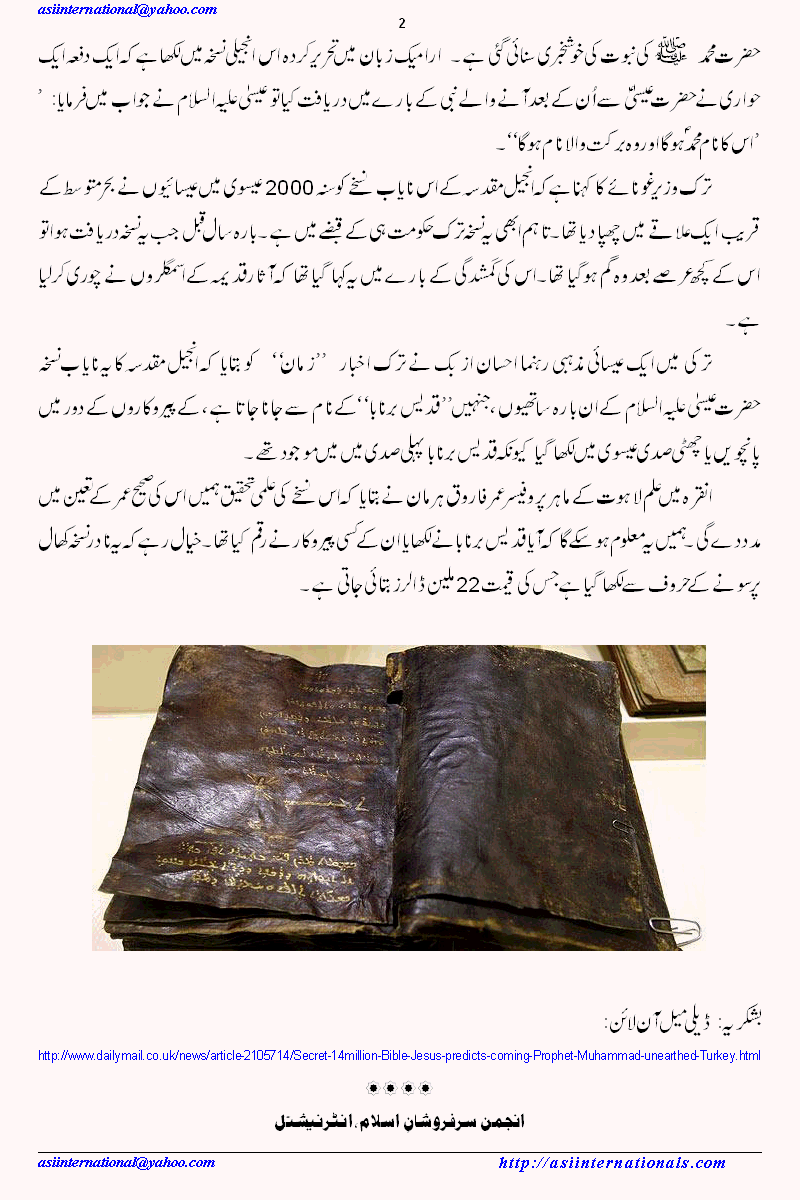 asiinternational@yahoo.com
2
حضرت محمد ﷺ کی نبوت کی خوشخبری سنائی گئی ہے ۔ ارامیک زبان میں تحریر کردہ اس انجیلی نسخہ میں لکھا ہے کہ ایک دفعہ ایک
حواری نے حضرت عیسیٰؑ سے اُن کے بعد آنے والے نبی کے بارے میں دریافت کیا تو عیسیٰ علیہ السلام نے جواب میں فرمایا: ’
’اس کا نام محمدؐ ہوگا اور وہ برکت والا نام ہوگا‘‘ ۔
ترک وزیر غونائے کا کہنا ہے کہ انجیل مقدسہ کے اس نایاب نسخے کو سنہ 2000 عیسوی میں عیسائیوں نے بحر متوسط کے
قریب ایک علاقے میں چھپا دیا تھا۔ تاہم ابھی یہ نسخہ ترک حکومت ہی کے قبضے میں ہے ۔ بارہ سال قبل جب یہ نسخہ دریافت ہوا تو
اس کے کچھ عرصے بعد وہ گم ہو گیا تھا۔ اس کی گمشدگی کے بارے میں یہ کہا گیا تھا کہ آثار قدیمہ کے اسمگلروں نے چوری کر لیا
ہے ۔
ترکی میں ایک عیسائی مذہبی رہنما احسان ازبک نے ترک اخبار ’’زمان‘‘ کو بتایا کہ انجیل مقدسہ کا یہ نایاب نسخہ
حضرت عیسیٰ علیہ السلام کے ان بارہ ساتھیوں ،جنہیں ’’قدیس برنابا‘‘ کے نام سے جانا جاتا ہے ، کے پیروکاروں کے دور میں
پانچویں یا چھٹی صدی عیسوی میں لکھا گیا کیونکہ قدیس برنابا پہلی صدی میں میں موجود تھے ۔
انقرہ میں علم لاہوت کے ماہر پروفیسر عمر فاروق ہرمان نے بتایا کہ اس نسخے کی علمی تحقیق ہمیں اس کی صحیح عمر کے تعین میں
مدد دے گی ۔ ہمیں یہ معلوم ہو سکے گا کہ آیا قدیس برنابا نے لکھا یا ان کے کسی پیروکار نے رقم کیا تھا۔ خیال رہے کہ یہ نادر نسخہ کھال
پر سونے کے حروف سے لکھا گیا ہے جس کی قیمت 22 ملین ڈالرز بتائی جاتی ہے ۔
بشکریہ: ڈیلی میل آن لائن:
http://www.dailymail.co.uk/news/article-2105714/Secret-14million-Bible-Jesus-predicts-coming-Prophet-Muhammad-unearthed-Turkey.html
انجمن سرفروشانِ اسلام، انٹرنیشنل
asiinternational@yahoo.com
http://asiinternationals.com